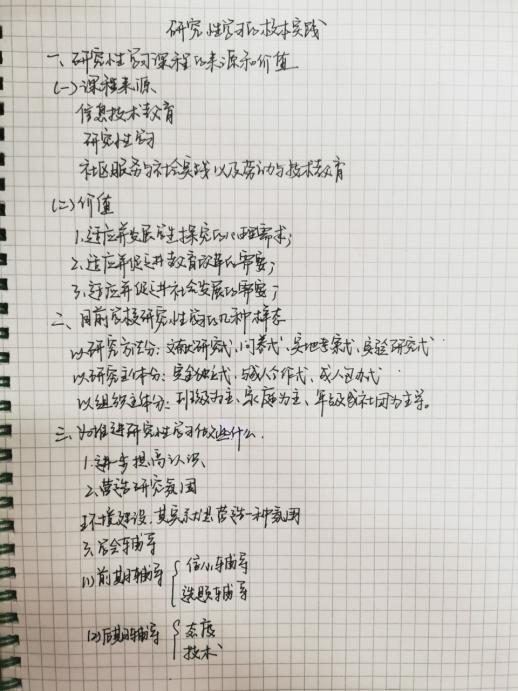 研究性学习的校本实践
一、研究性学习课程的来源和价值
(一)课程来源
信息技术教育
研究性学习
社区服务与社会实践以及劳动与技术教育
(二)价值
1.适应并发展学生探究的心理需求;
2.适应并促进教育改革的需要;
3.适应并促进社会发展的需要;
二、目前学校研究性学习的几种样态
以研究方法分:文献研究式、问卷式、实地考察式、实验研究式
以研究主体分:完全独立式、与成人合作式、成人包办式
以组织主体分:班级为主、家庭为主、年级或社团为主等。
三、为推进研究性学习做些什么
1.进步提高认识
2.营造研究氛围
环境建设,其实就是营造一种氛围
3.学会辅导
(1)前期辅导 信心辅导
选题辅导
(2)后期辅导 态度
技术